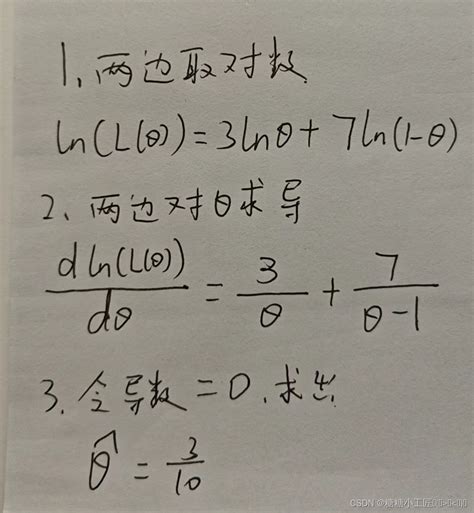 1、两边取对数
ln(L(θ))=3lnθ+7ln(1-θ)
2、两边对θ求导
dln(L(θ))/dθ = 3/θ + 7/(θ-1)
3. 令导数=0.求出
θ̂ = 3/10
CSDN @糖糖小工匠